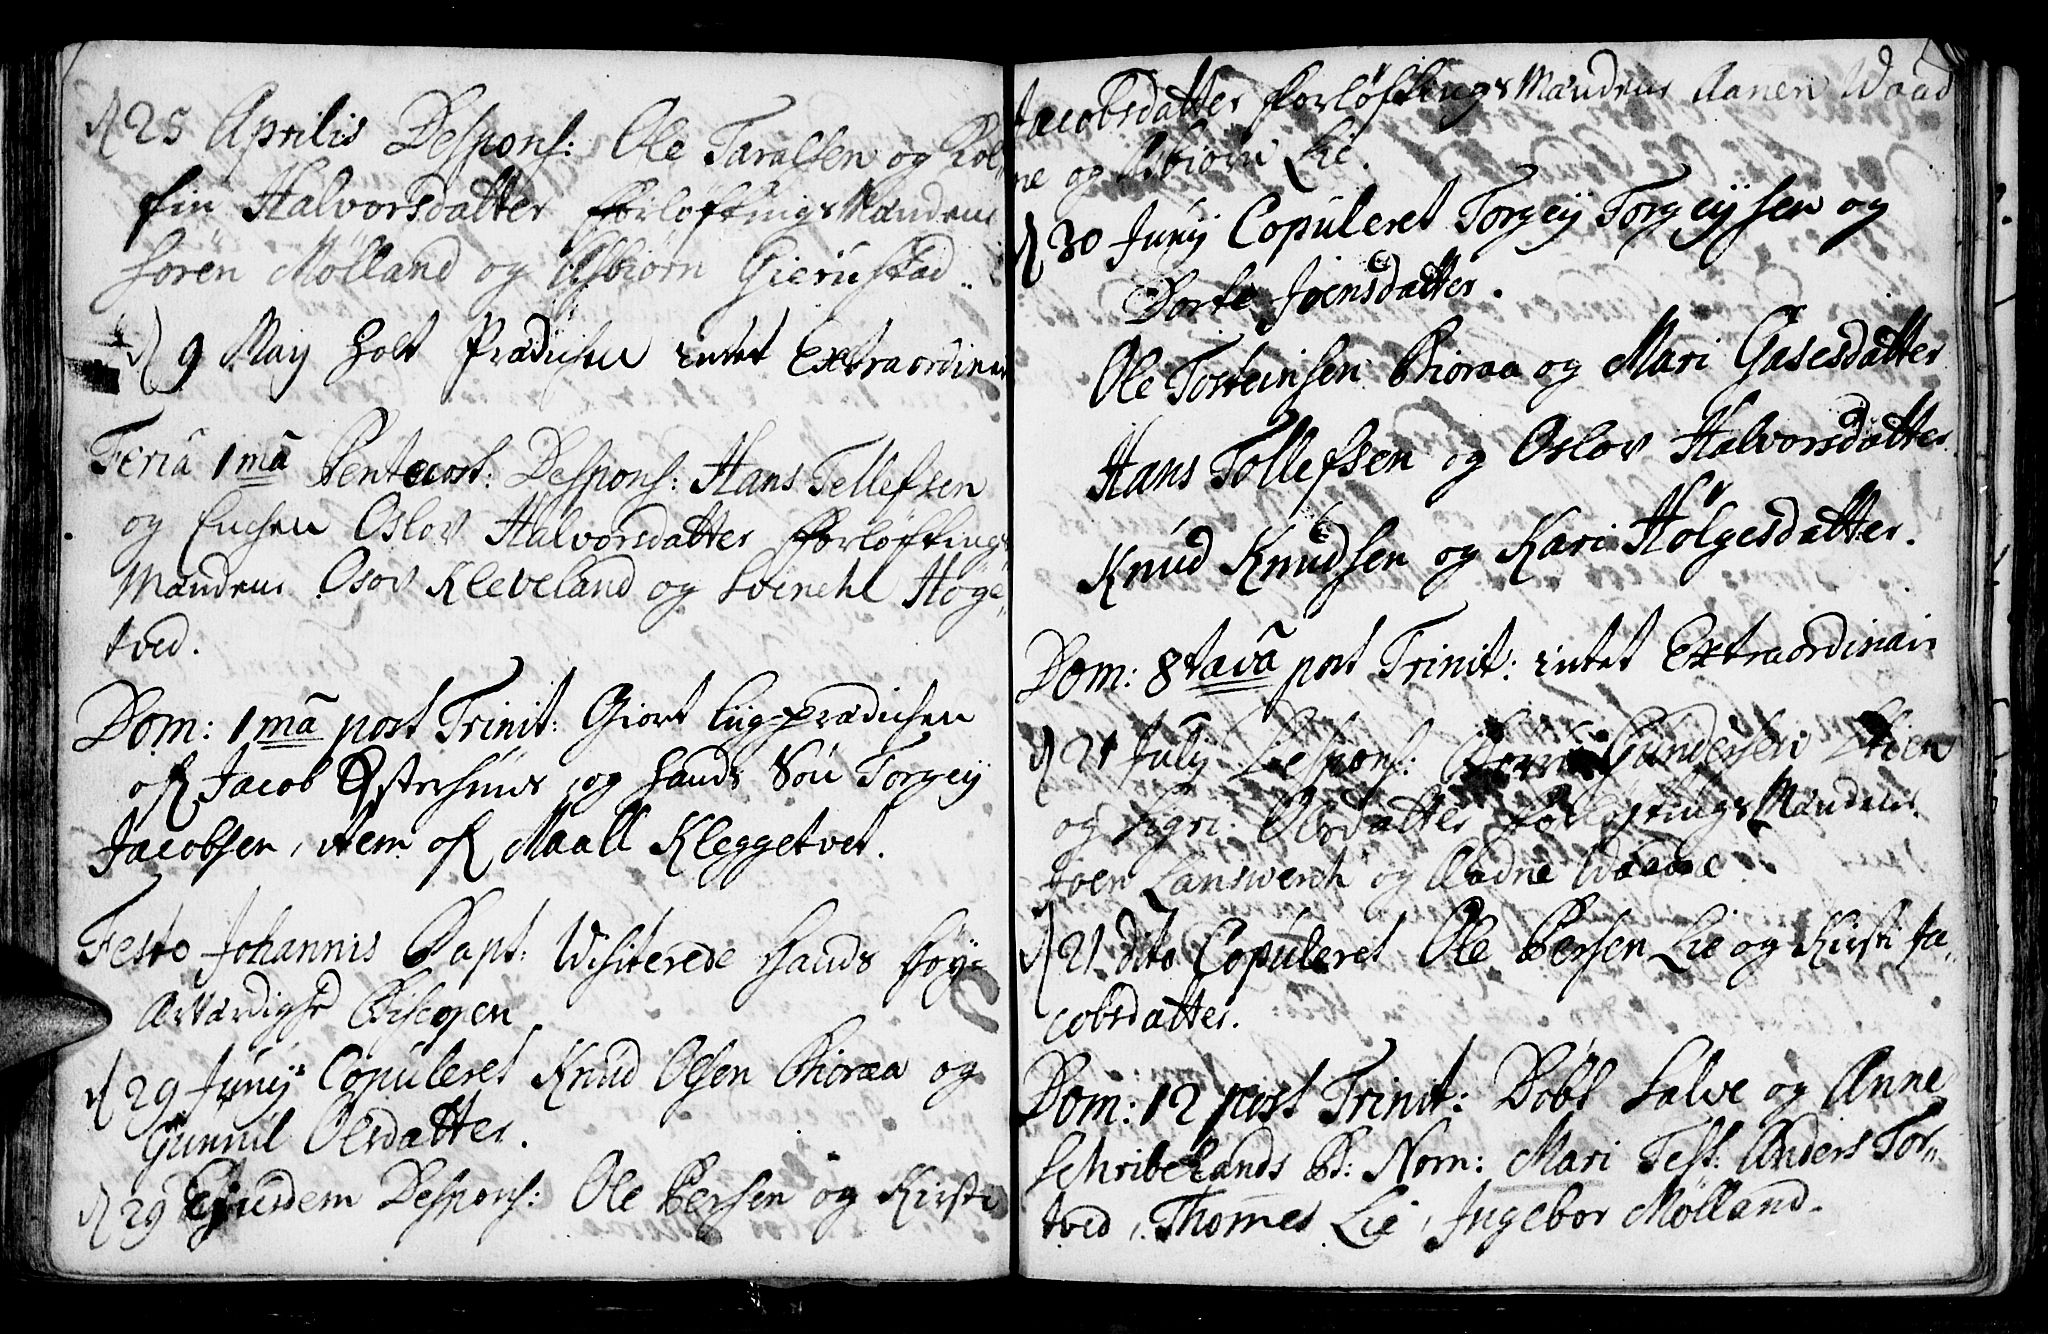 d 25 Aprilis Despons: Ole Taralsen og Kol
fin Halvorsdatter Forløftings Mændene
Søren Mølland og Asbiørn Gierustad..
d 9 May Holt Prædichen intet Extraordinair
Feriâ 1mâ Pentecost: Despons: Hans Tellefsen
og Enchen Oslov Halvorsdatter Forløftings
Mændene Osov Kleveland og Svenche Høge-
tved.
Dom: 1mâ post Trinit: Giort Liigprædichen
of Jacob Østerhuus og hands Søn Torgey
Jacobsen, item of Maall Kleggetvet.
Festo Johannis Bapt: Visiterede Hands Høy-
Ærværdighd Biscopen
d 29 Juny Copuleret Knud Olsen Bioraa og
Gunnil Olsdatter.
d 29 Ejusdem Despons: Ole Persen og Kirsti
Jacobsdatter Forløftings Mændene Aanen Waad
ne og Asbiørn Lie.
d 30 Juny Copuleret Torgey Torgeysen og
Dorte Joensdatter.
Ole Tosteinsen Bioraa og Mari Gasesdatter
Hans Tollefsen og Oslov Halvorsdatter
Knud Knudsen og Kari Hølgesdatter.
Dom: 8tavâ post Trinit: intet Extraordinair
d 21 July Despons: Gundersen Stien
og Sigri Olsdatter Forløftings Mændene
Joen Lanswerch og Aadne Waane
d 21 dito Copuleret Ole Persen Lie og Kirsti Ja-
cobsdatter.
Dom: 12 post Trinit: Døbt Salve og Anne
Schribelands B: Nom: Mari Test: Anders Tor-
tved, Thomes Lie, Ingebor Mølland.